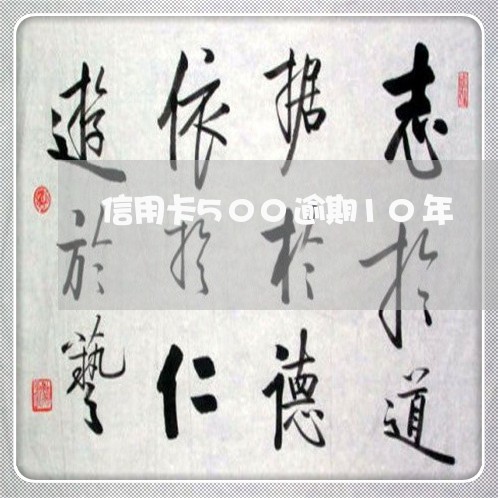 志於道
据於德
依於仁
遊於藝
信用卡500逾期10年